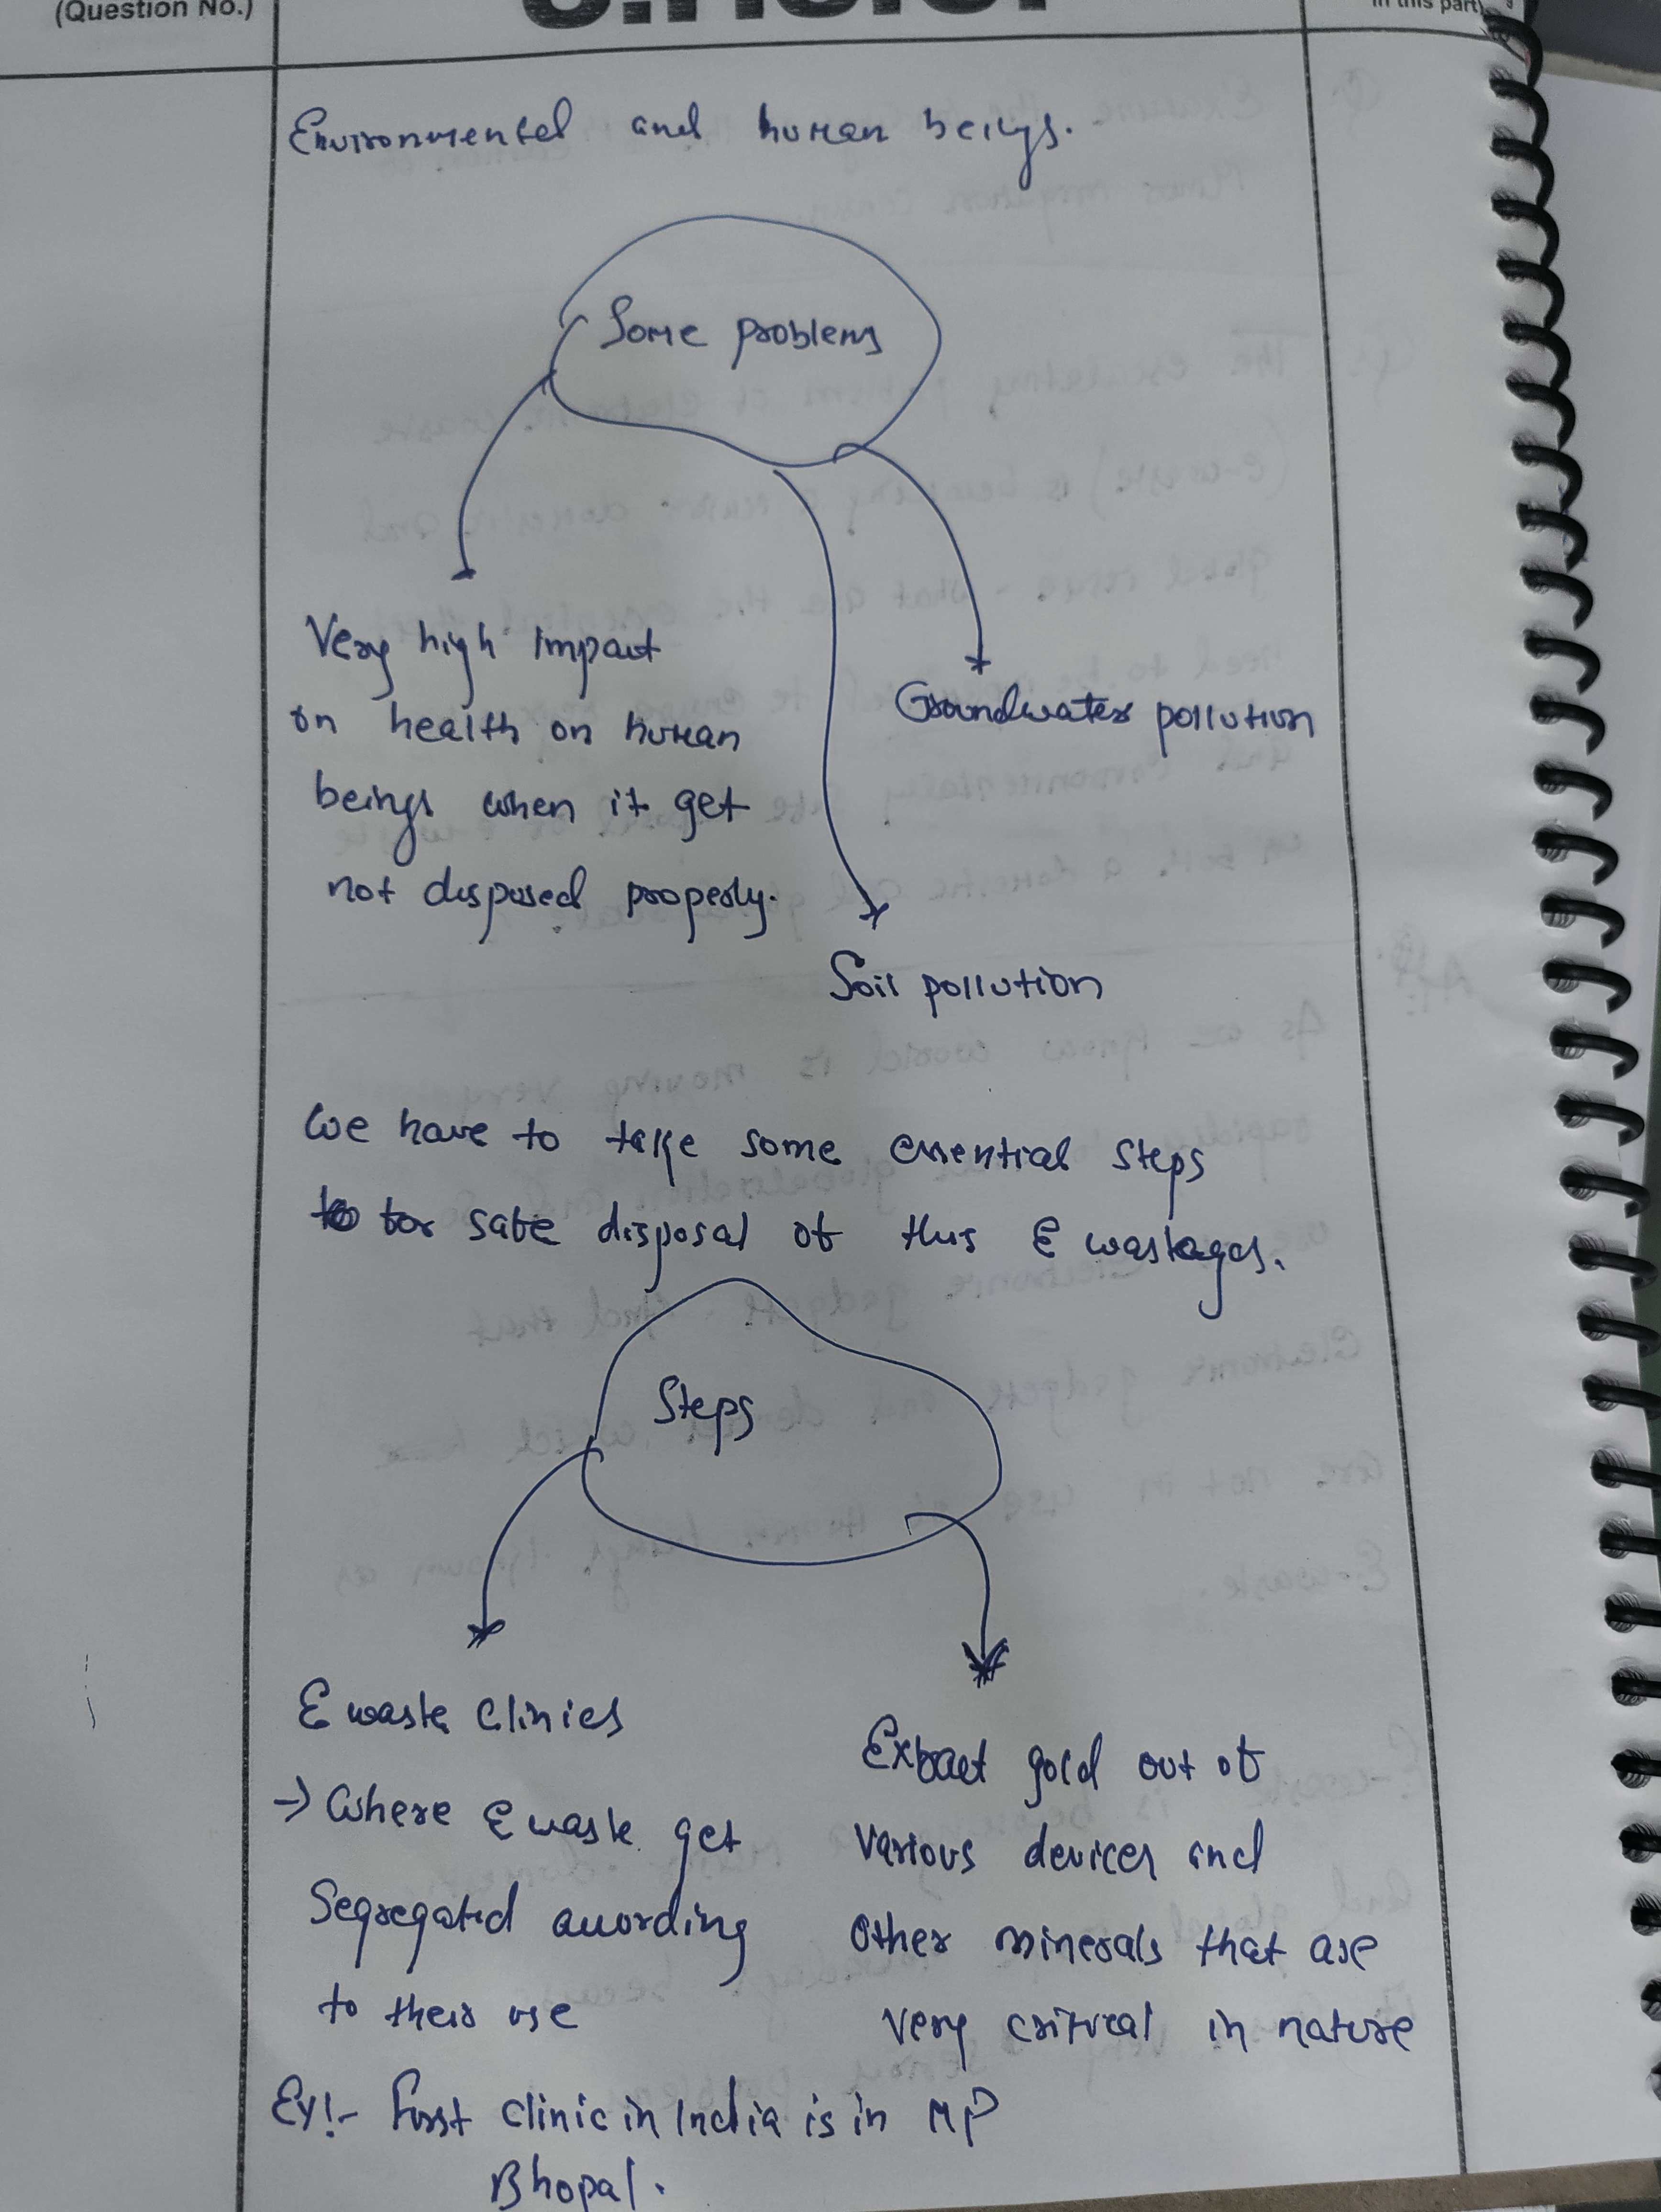 (Question No.)
in this part)
Environmental and human beings.
Some problems
Very high impact
on health on human
beings when it get
not disposed properly.
Groundwater pollution
Soil pollution
We have to take some essential steps
for safe disposal of this E wastages.
Steps
E waste clinics
→ Where E waste get
Segregated according
to their use
Ex:- First clinic in India is in MP
Bhopal.
Extract gold out of
various devices and
other minerals that are
very critical in nature